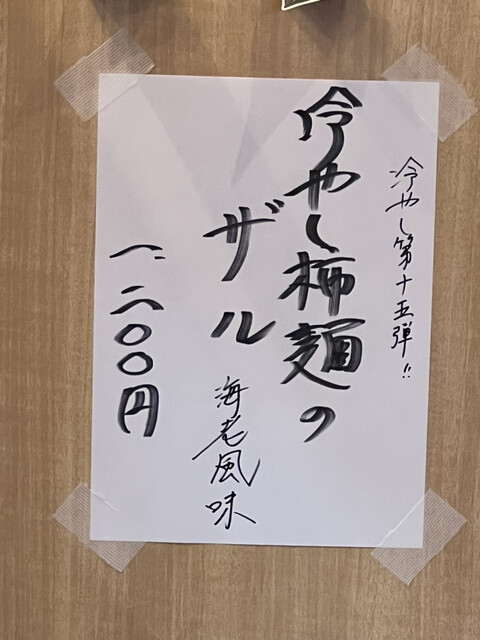 冷やし第十五弾!!
冷やし柿麺の
ザル
海老風味
一、二〇〇円